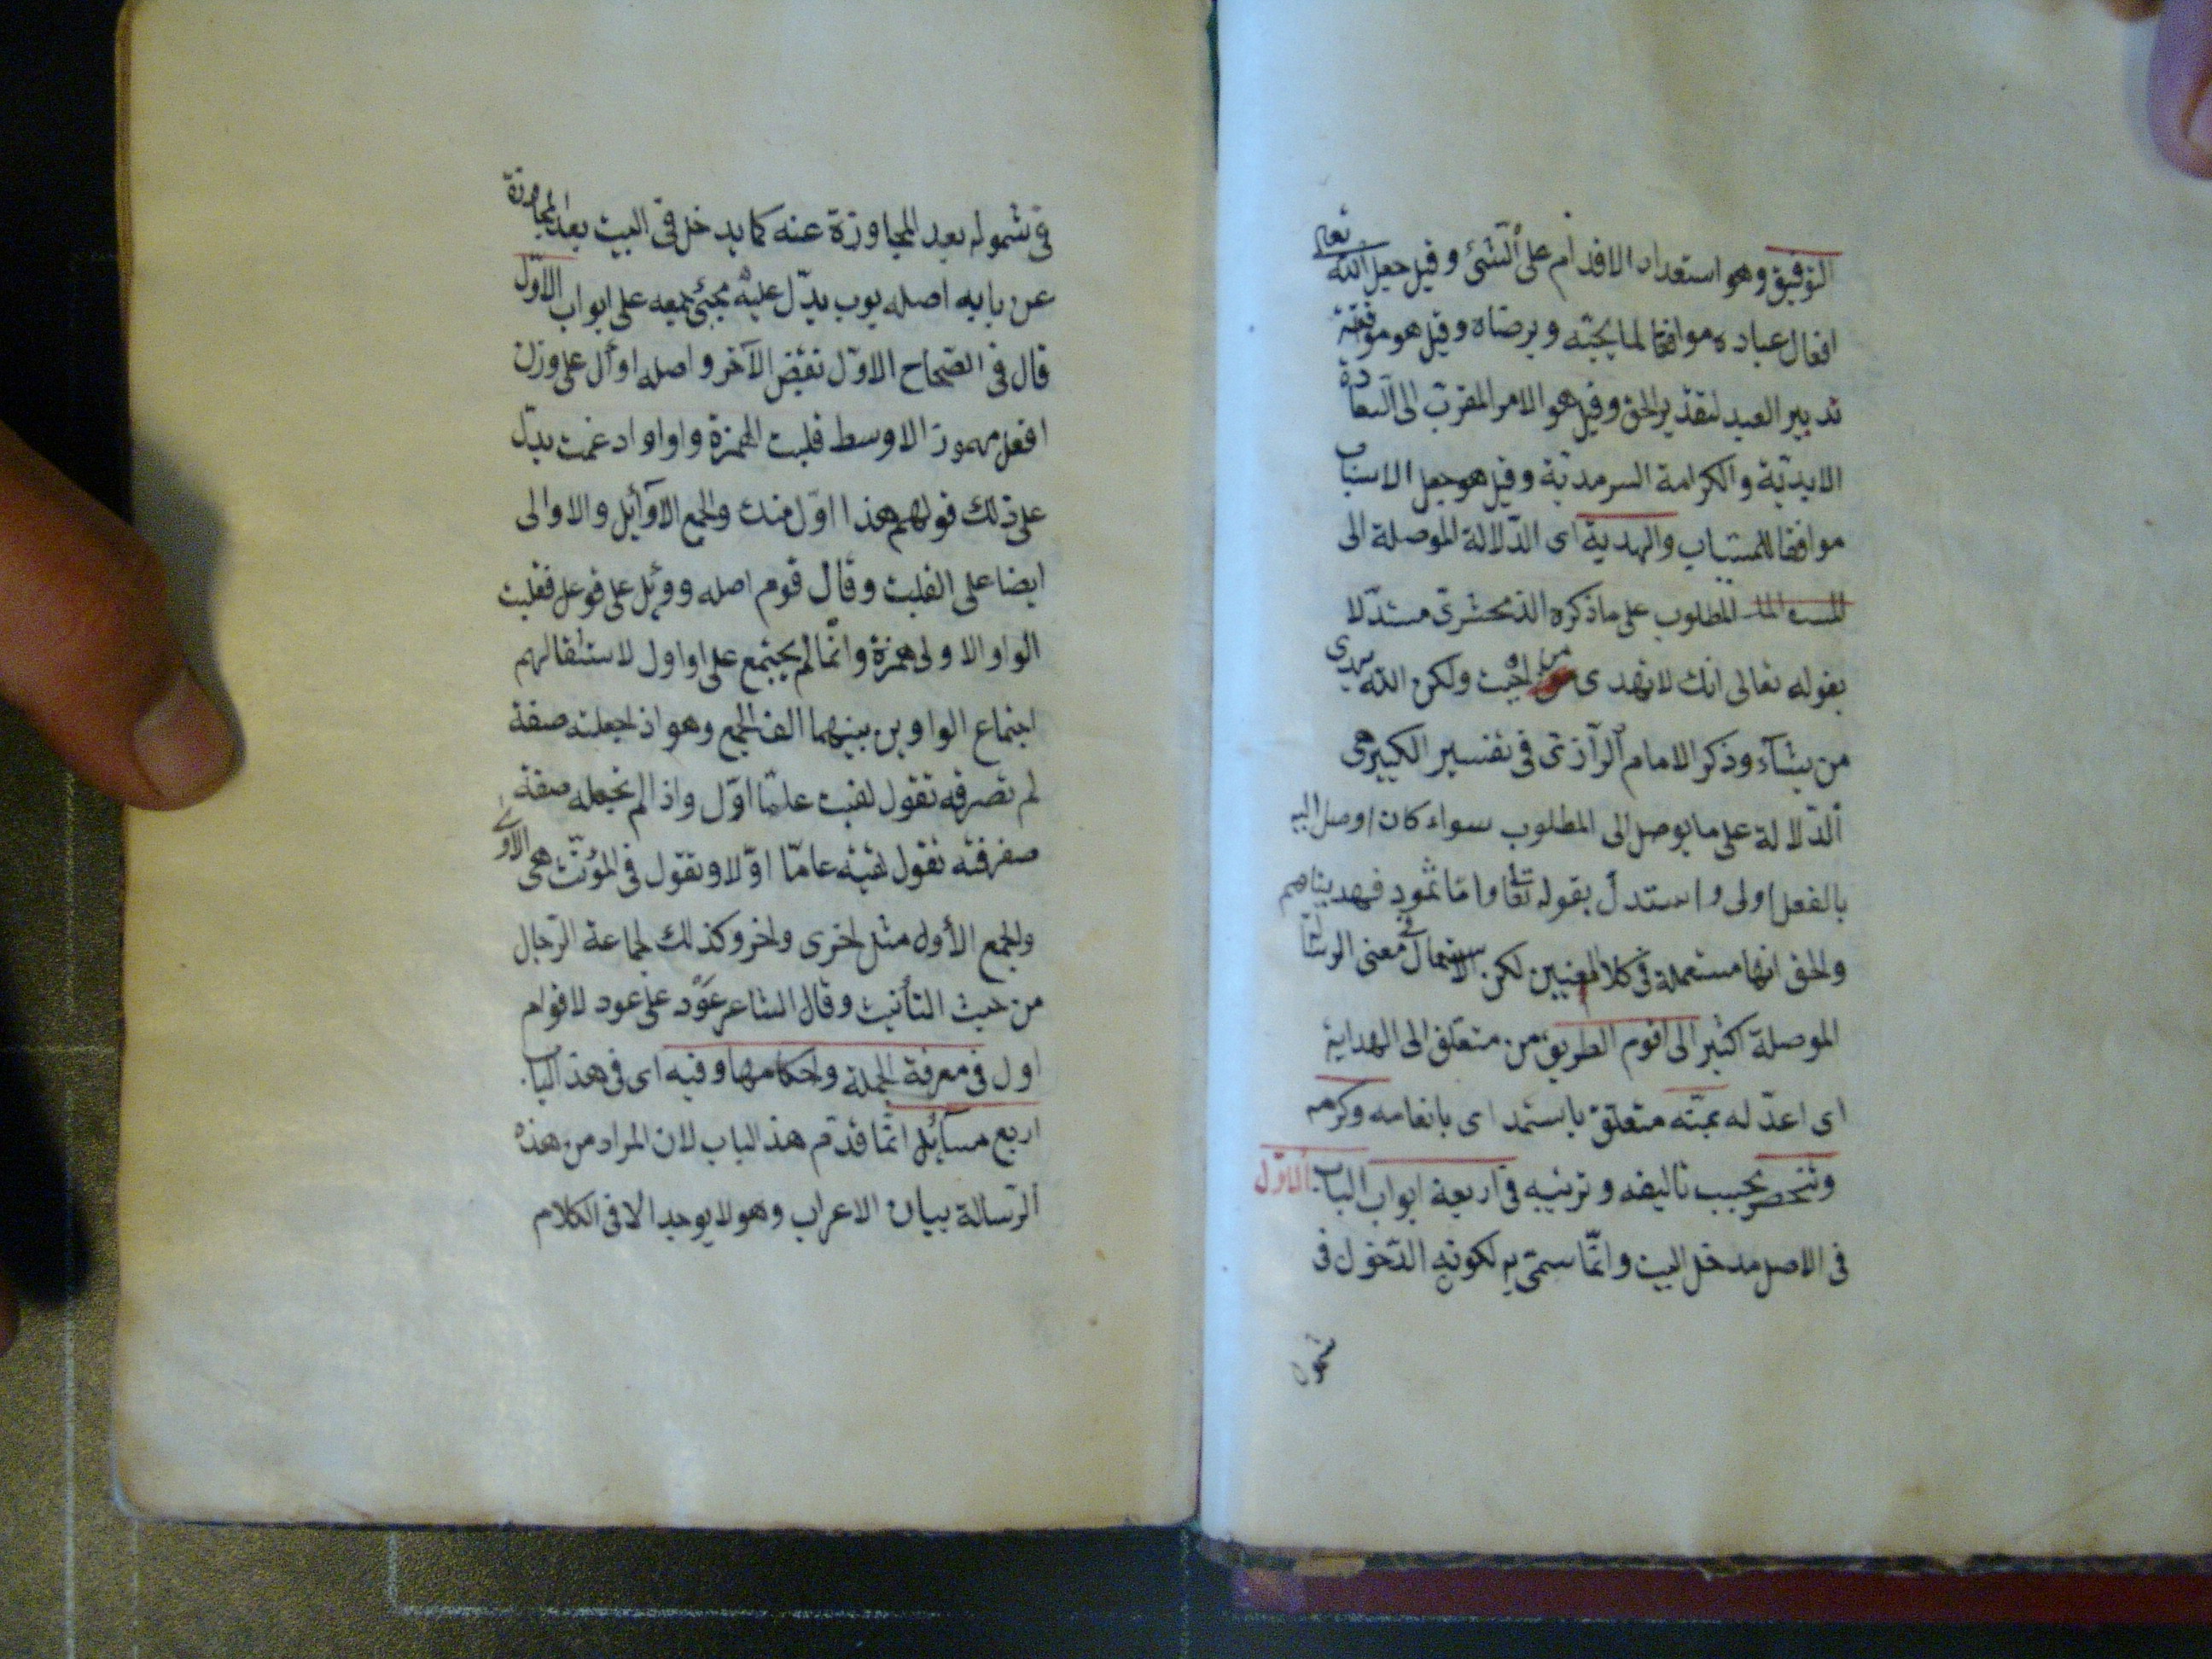 التوفيق وهو استعداد الاقدام على الشئ وقيل جعل الله تعالى
افعال عباده موافقا لما يحبّه ويرضاه وقيل هو موافقة
تدبير العبد لتقدير الحق وقيل هو الامر المقرّب الى السعادة
الابديّة والكرامة السرمديّة وقيل هو جعل الاسباب
موافقا للمسبّبات والهدية اى الدّلالة الموصلة الى
المطلوب على ما ذكره الذمخشرى مستدّلا
بقوله تعالى انك لا تهدى من احببت ولكن الله يهدى
من يشآء وذكر الامام الرّازى فى تفسير الكبير هى
الدّلالة على ما يوصل الى المطلوب سواء كان اوصل اليه
بالفعل اولى واستدلّ بقوله تعا وامّا ثمود فهديناهم
والحق انها مستعملة فى كلا المعنيين لكن الاستعمال فى معنى
الموصلة اكثر الى اقوم الطريق من متعلق الى الهداية
اى اعدّ له بمنّه متعلق باستمد اى بانعامه وكرمه
وتنحصر بحسب تاليفه وترتيبه فى اربعة ابواب الباب الاوّل
فى الاصل مدخل البيت وانّما سمّى به لكونه الدّخول فى
شموله
فى شموله بعد المجاوزة عنه كما يدخل فى البيت بعد المجاوزة
عن بابه اصله بوب يدّل عليه مجئ جمعه على ابواب الاوّل
قال فى الصّحاح الاوّل نقيض الآخر واصله اوأل على وزن
افعل مهموز الاوسط قلبت الهمزة واوا وادغمت يدّل
على ذلك قولهم هذا اوّل منك والجمع الاوآئل والاوالى
ايضا على القلب وقال قوم اصله ووئل على فوعل فقلبت
الواو الاولى همزة وانّما لم يجتمع على اواول لاستثقالهم
اجتماع الواوين بينهما الف الجمع وهو اذ اجعلته صفة
لم تصرفه تقول لقيت علمّا اوّل واذا لم تجعله صفة
صفرفته تقول لقيته عامّا اوّلا وتقول فى المؤنّث هى الاولى
والجمع الأول مثل اخرى واخر وكذلك لجماعة الرّجال
من حيث التأنيث وقال الشاعر عَوْد على عود لاقوام
اول فى معرفة الجملة واحكامها وفيه اى فى هذ الباب
اربع مسآئل انّما قدّم هذ الباب لان المراد من هذه
الرّسالة بيان الاعراب وهو لا يوجد الا فى الكلام